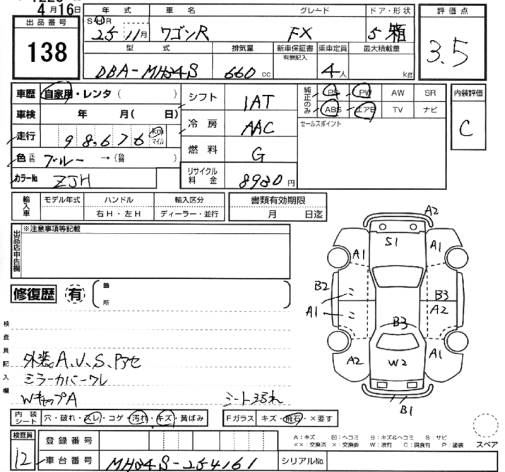 4月16日
出品番号
138
年式 車名 グレード ドア・形状
25年11月 ワゴンR FX 5 箱
型式 排気量 新車保証書 有無記入 乗車定員 最大積載量
DBA-MH34S 660cc 4人 kg
評価点
3.5
車歴 自家用・レンタ( )
車検 年 月( 日)
走行 98,676 km マイル
色 元色 ブルー →(替色 )
カラーNo ZJH
シフト IAT
冷房 AAC
燃料 G
リサイクル料金 8920円
純正のみ PS PW AW SR
ABS エアB TV ナビ
セールスポイント
内装評価
C
輸入車 モデル年式 ハンドル 輸入区分
右H・左H ディーラー・並行
書類有効期限
月 日迄
出品店申告欄 ※注意事項等記載
修復歴 有 箇所
検査員記入欄
外装A、U、S、
ミラーカバーワレ
WキャップA
シートスレ
内装シート 穴・破れ・スレ・コゲ・汚れ・キズ・黄ばみ
Fガラス キズ・飛石・×要す
検査員
12
登録番号
車台番号 MH34S-254161
シリアルNo
A2
S1
A1 A1
B2
A1
B3
A2
B3
A2 W2 A1
B1
スペア
A:キズ 凹:ヘコミ B:キズ&ヘコミ S:サビ
××:交換済 ×:交換要 W:波打 C:腐食有 P:塗装